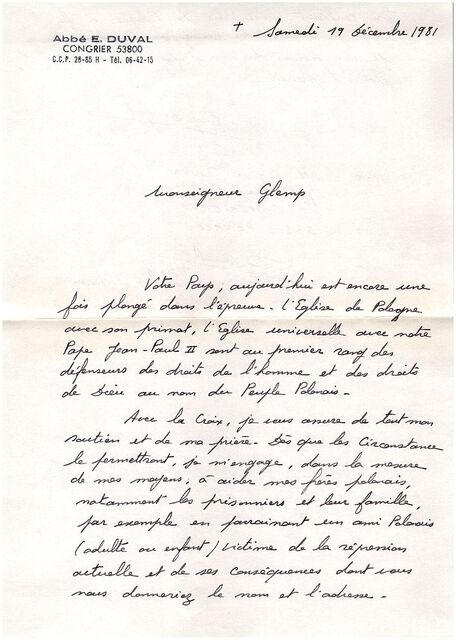 Abbé E. DUVAL
CONGRIER 53800
C.C.P. 28-85 H - Tél. 06-42-15
+ Samedi 19 Décembre 1981
Monseigneur Glemp
Votre Pays, aujourd'hui est encore une
fois plongé dans l'épreuve - l'Eglise de Pologne
avec son primat, l'Eglise universelle avec notre
Pape Jean-Paul II sont au premier rang des
défenseurs des droits de l'homme et des droits
de Dieu au nom du Peuple Polonais -
Avec la Croix, je vous assure de tout mon
soutien et de ma prière - Dès que les Circonstance
le permettront, je m'engage, dans la mesure
de mes moyens, à aider mes frères polonais,
notamment les prisonniers et leur famille,
par exemple en parrainant un ami Polonais
(adulte ou enfant) victime de la répression
actuelle et de ses conséquences dont vous
nous donneriez le nom et l'adresse -